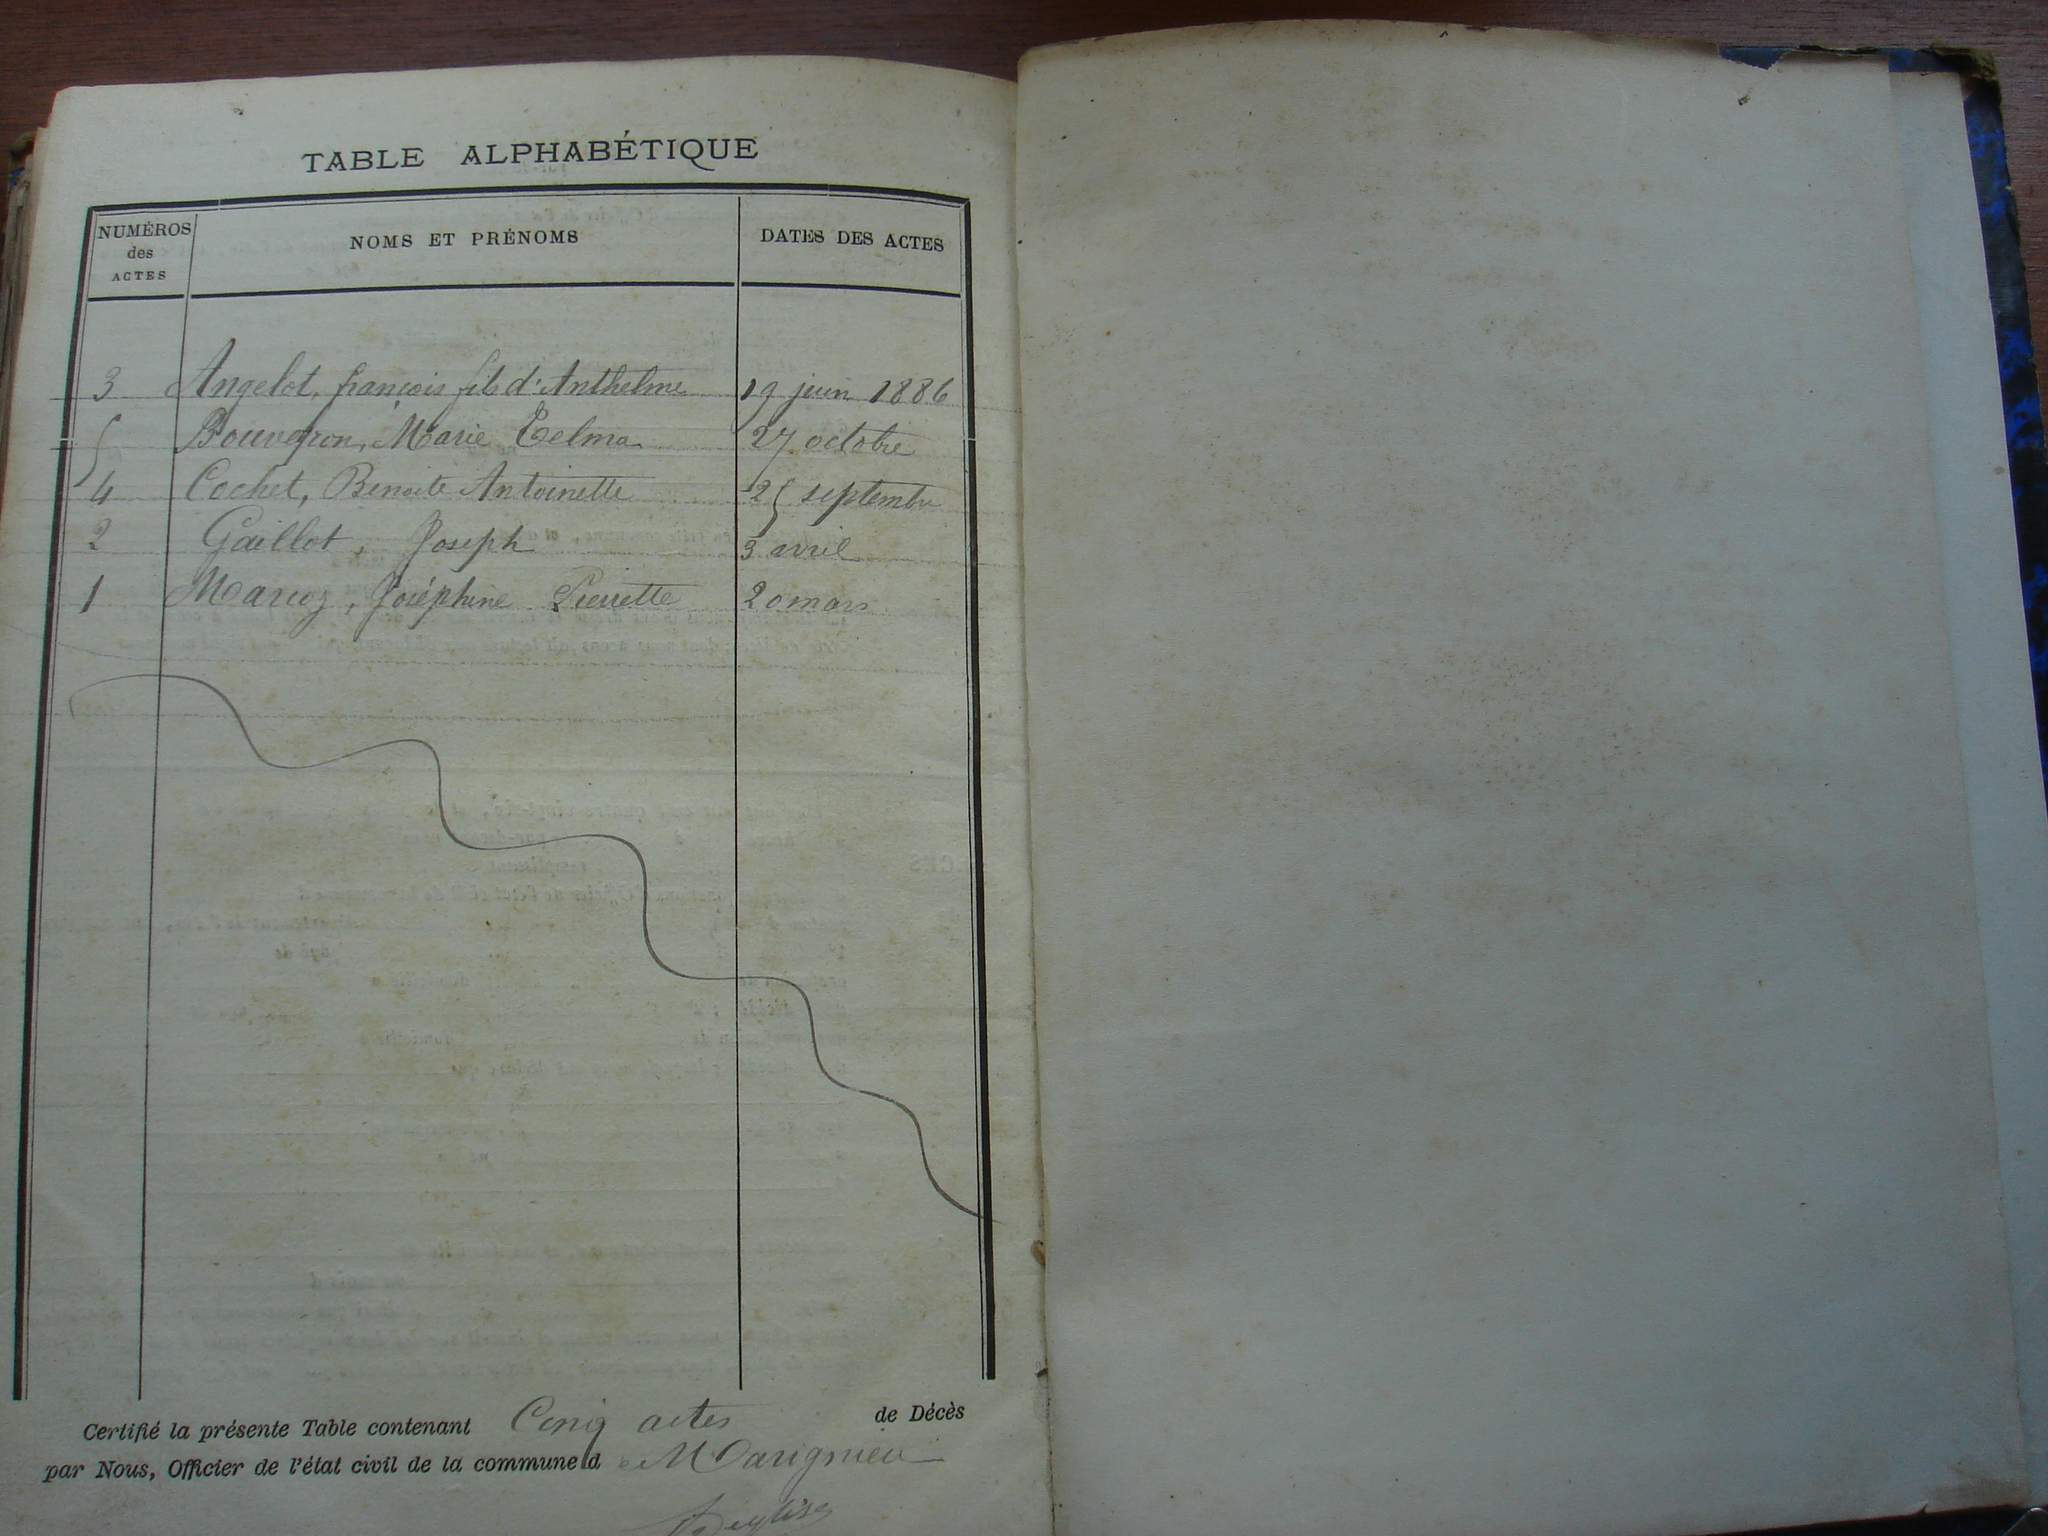 TABLE ALPHABÉTIQUE
NUMÉROS des ACTES NOMS ET PRÉNOMS DATES DES ACTES
3 Angelot, françois fils d'Anthelme 19 juin 1886
5 Bouveyron, Marie Zelma 27 octobre
4 Cochet, Benoite Antoinette 25 septembre
2 Gaillot, Joseph 3 avril
1 Marcoz, Joséphine Pierrette 20 mars
Certifié la présente Table contenant Cinq actes de Décès
par Nous, Officier de l'état civil de la commune de Marignieu